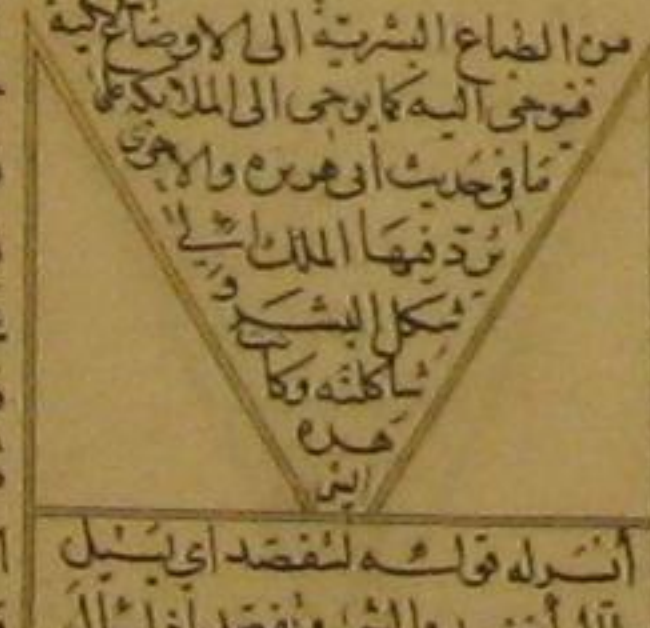 من الطباع البشرية الى الاوضاع الملكية
فيوحى اليه كما يوحى الى الملائكة على
ما فى حديث أبى هريرة والاخرى
يُردّ فيها الملك الى
شكل البشر و
شاكلته وكانت
هذه
أيسر له قوله ليتفصد اي يسيل